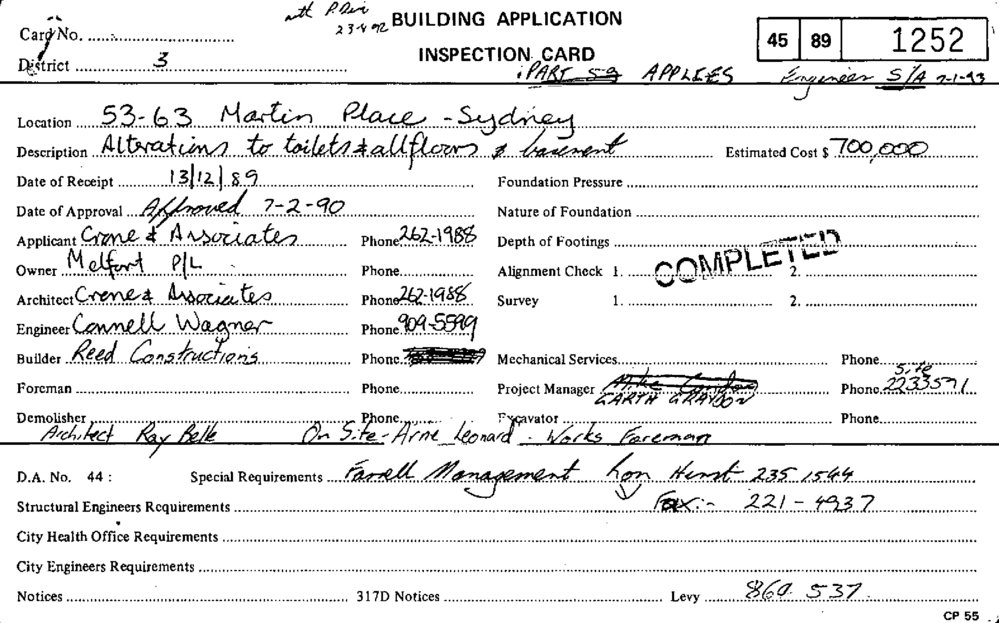 with P. 23-4-92 BUILDING APPLICATION
Card No.
INSPECTION CARD
45 89 1252
District 3
PART 59 APPLIES Engineer S/A 7-1-93
Location 53-63 Martin Place - Sydney
Description Alterations to toilets & all floors & basement Estimated Cost $ 700,000
Date of Receipt 13/12/89 Foundation Pressure
Date of Approval Approved 7-2-90 Nature of Foundation
Applicant Crone & Associates Phone 262-1988 Depth of Footings
COMPLETED
Owner Melfort P/L Phone Alignment Check 1. 2.
Architect Crone & Associates Phone 262-1988 Survey 1. 2.
Engineer Connell Wagner Phone 909-5599
Builder Reed Constructions Phone Mechanical Services Phone
Site
Foreman Phone Project Manager Phone 2233591
GARTH GRAYDON
Demolisher Phone Excavator Phone
Architect Ray Belle On Site - Arne Leonard - Works Foreman
D.A. No. 44 : Special Requirements Farrell Management Ron Hurst 235 1544
Structural Engineers Requirements Fax:- 221-4937
City Health Office Requirements
City Engineers Requirements
Notices 317D Notices Levy 860 537
CP 55